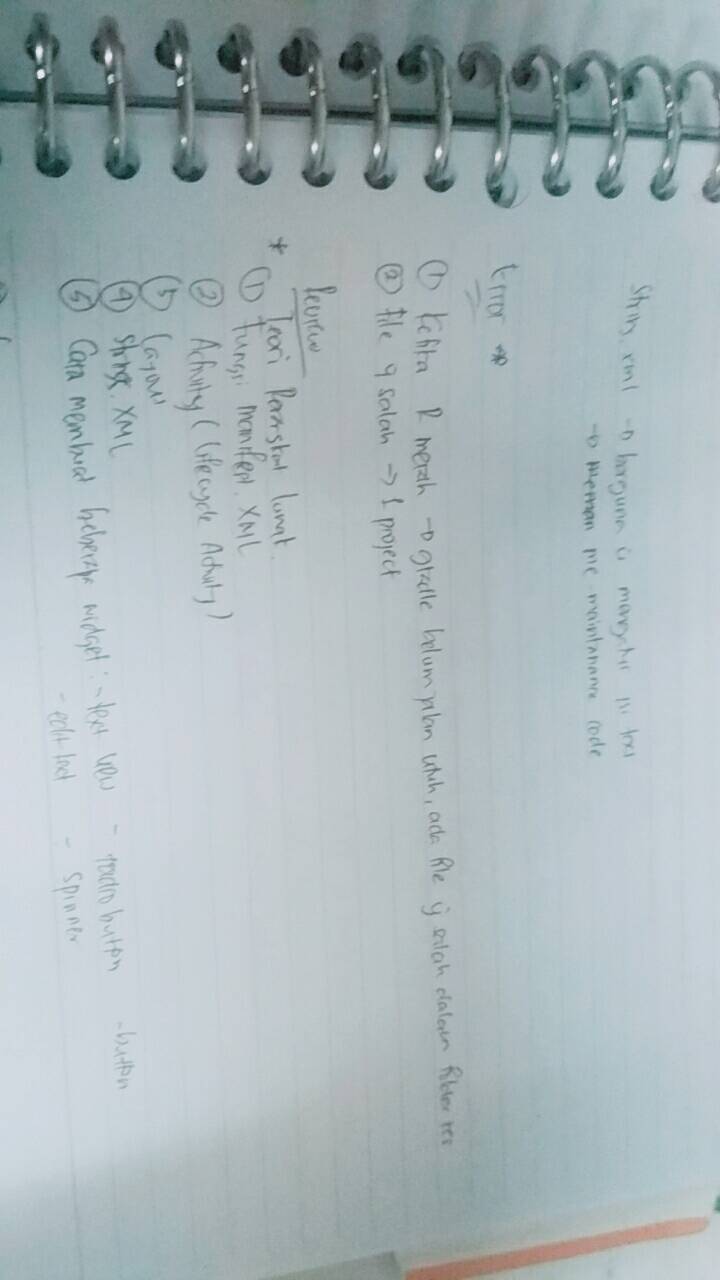 String.xml → berguna u mengatur isi text
→ meman me maintanance code
Error →
① Ketika R merah → gradle belum jalan utuh, ada file yg salah dalam folder res
② file yg salah → 1 project
Review
* Teori Perangkat lunak
① Fungsi manifest.XML
② Activity (Lifecycle Activity)
③ Layout
④ Strings.XML
⑤ Cara membuat beberapa widget: - text view - radio button - button
- edit text - spinner